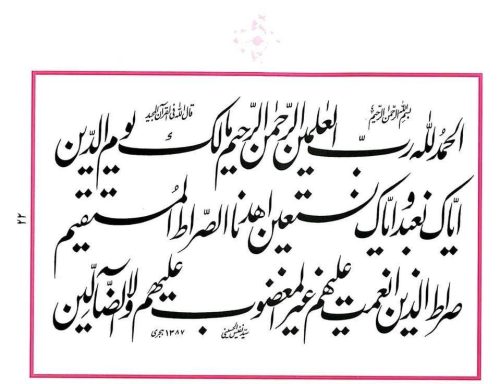 بسم الله الرحمن الرحیم
قال الله فی القرآن المجید
الحمد لله رب العلمین الرحمٰن الرحیم مالک یوم الدین
ایاک نعبد وایاک نستعین اهدنا الصراط المستقیم
صراط الذین انعمت علیهم غیر المغضوب علیهم ولا الضآلین
سید نفیس الحسینی ۱۳۸۷ هجری
۲۲